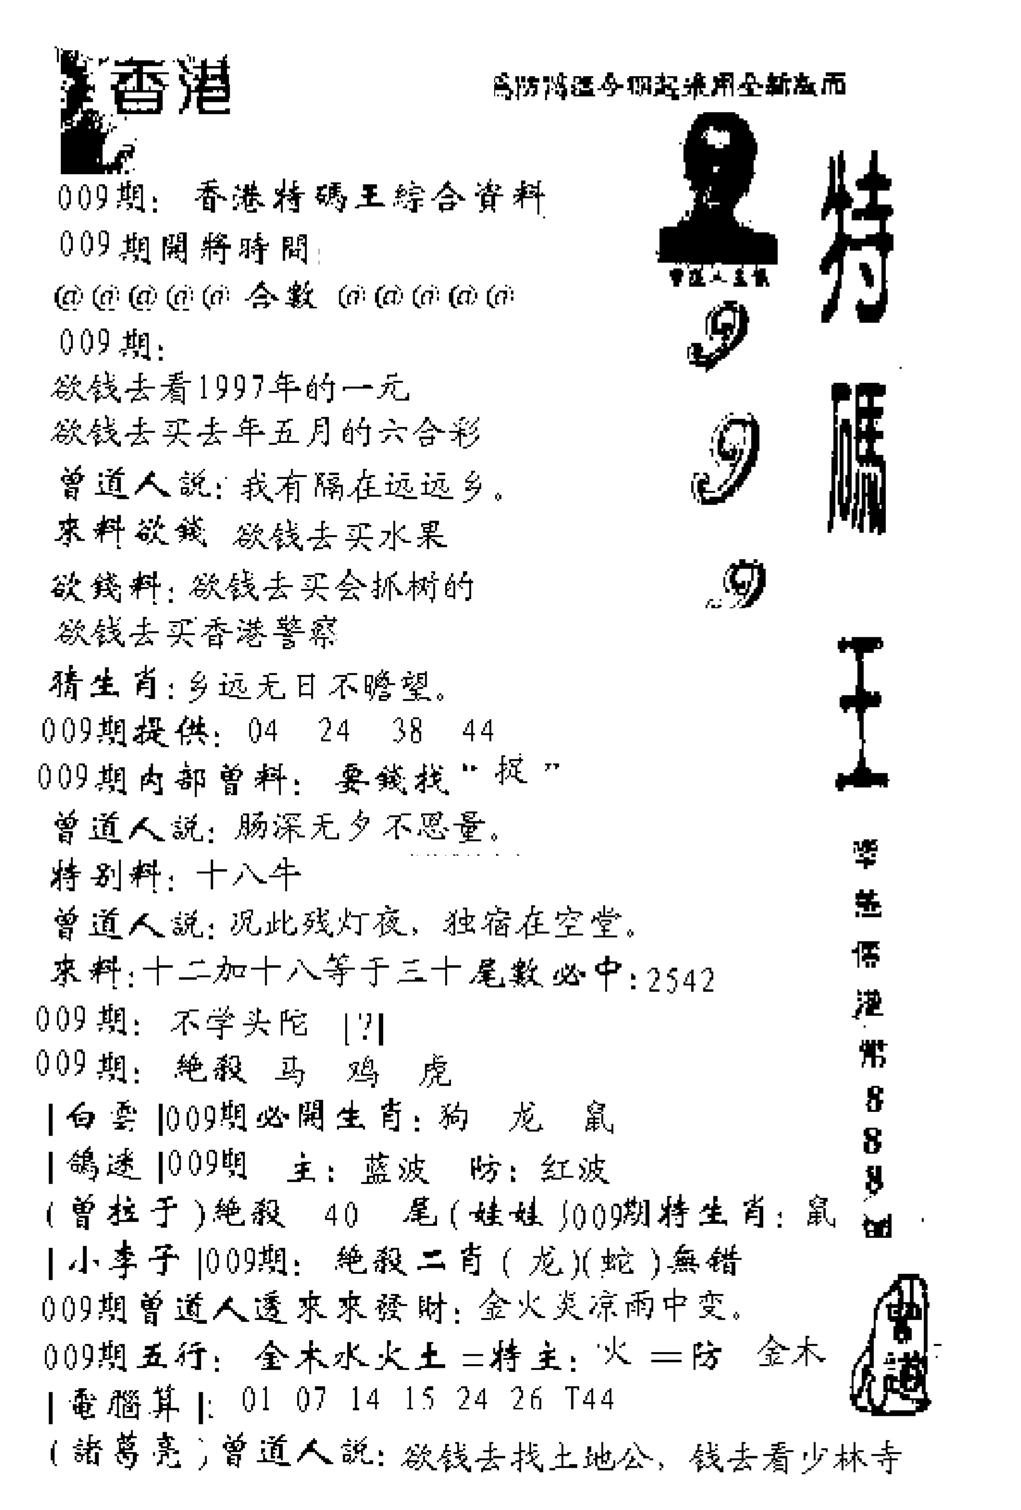 香港
爲防鴻溫今期起采用全新版面
曾道人主供
特碼王
9
9
9
009期：香港特碼王綜合資料
009期開將時間:
@@@@@合數@@@@@
009期：
欲钱去看1997年的一元
欲钱去买去年五月的六合彩
曾道人説：我有隔在远远乡。
來料欲錢 欲钱去买水果
欲錢料：欲钱去买会抓树的
欲钱去买香港警察
猜生肖：乡远无日不瞻望。
009期提供：04 24 38 44
009期内部曾料：要錢找“捉”
曾道人説：肠深无夕不思量。
特别料：十八牛
曾道人説：况此残灯夜，独宿在空堂。
來料：十二加十八等于三十尾數必中：2542
009期：不学头陀 [?]
009期：絶殺 马 鸡 虎
|白雲|009期必開生肖：狗 龙 鼠
|鴿迷|009期 主：蓝波 防：红波
(曾拉于)絶殺 40 尾(娃娃)009期特生肖：鼠
|小李子|009期：絶殺二肖(龙)(蛇)無错
009期曾道人透來來發財：金火炎凉雨中变。
009期五行：金木水火土=特主：火=防 金木
|電腦算|：01 07 14 15 24 26 T44
(諸葛亮)曾道人説：欲钱去找土地公，钱去看少林寺
港幣888
曾道